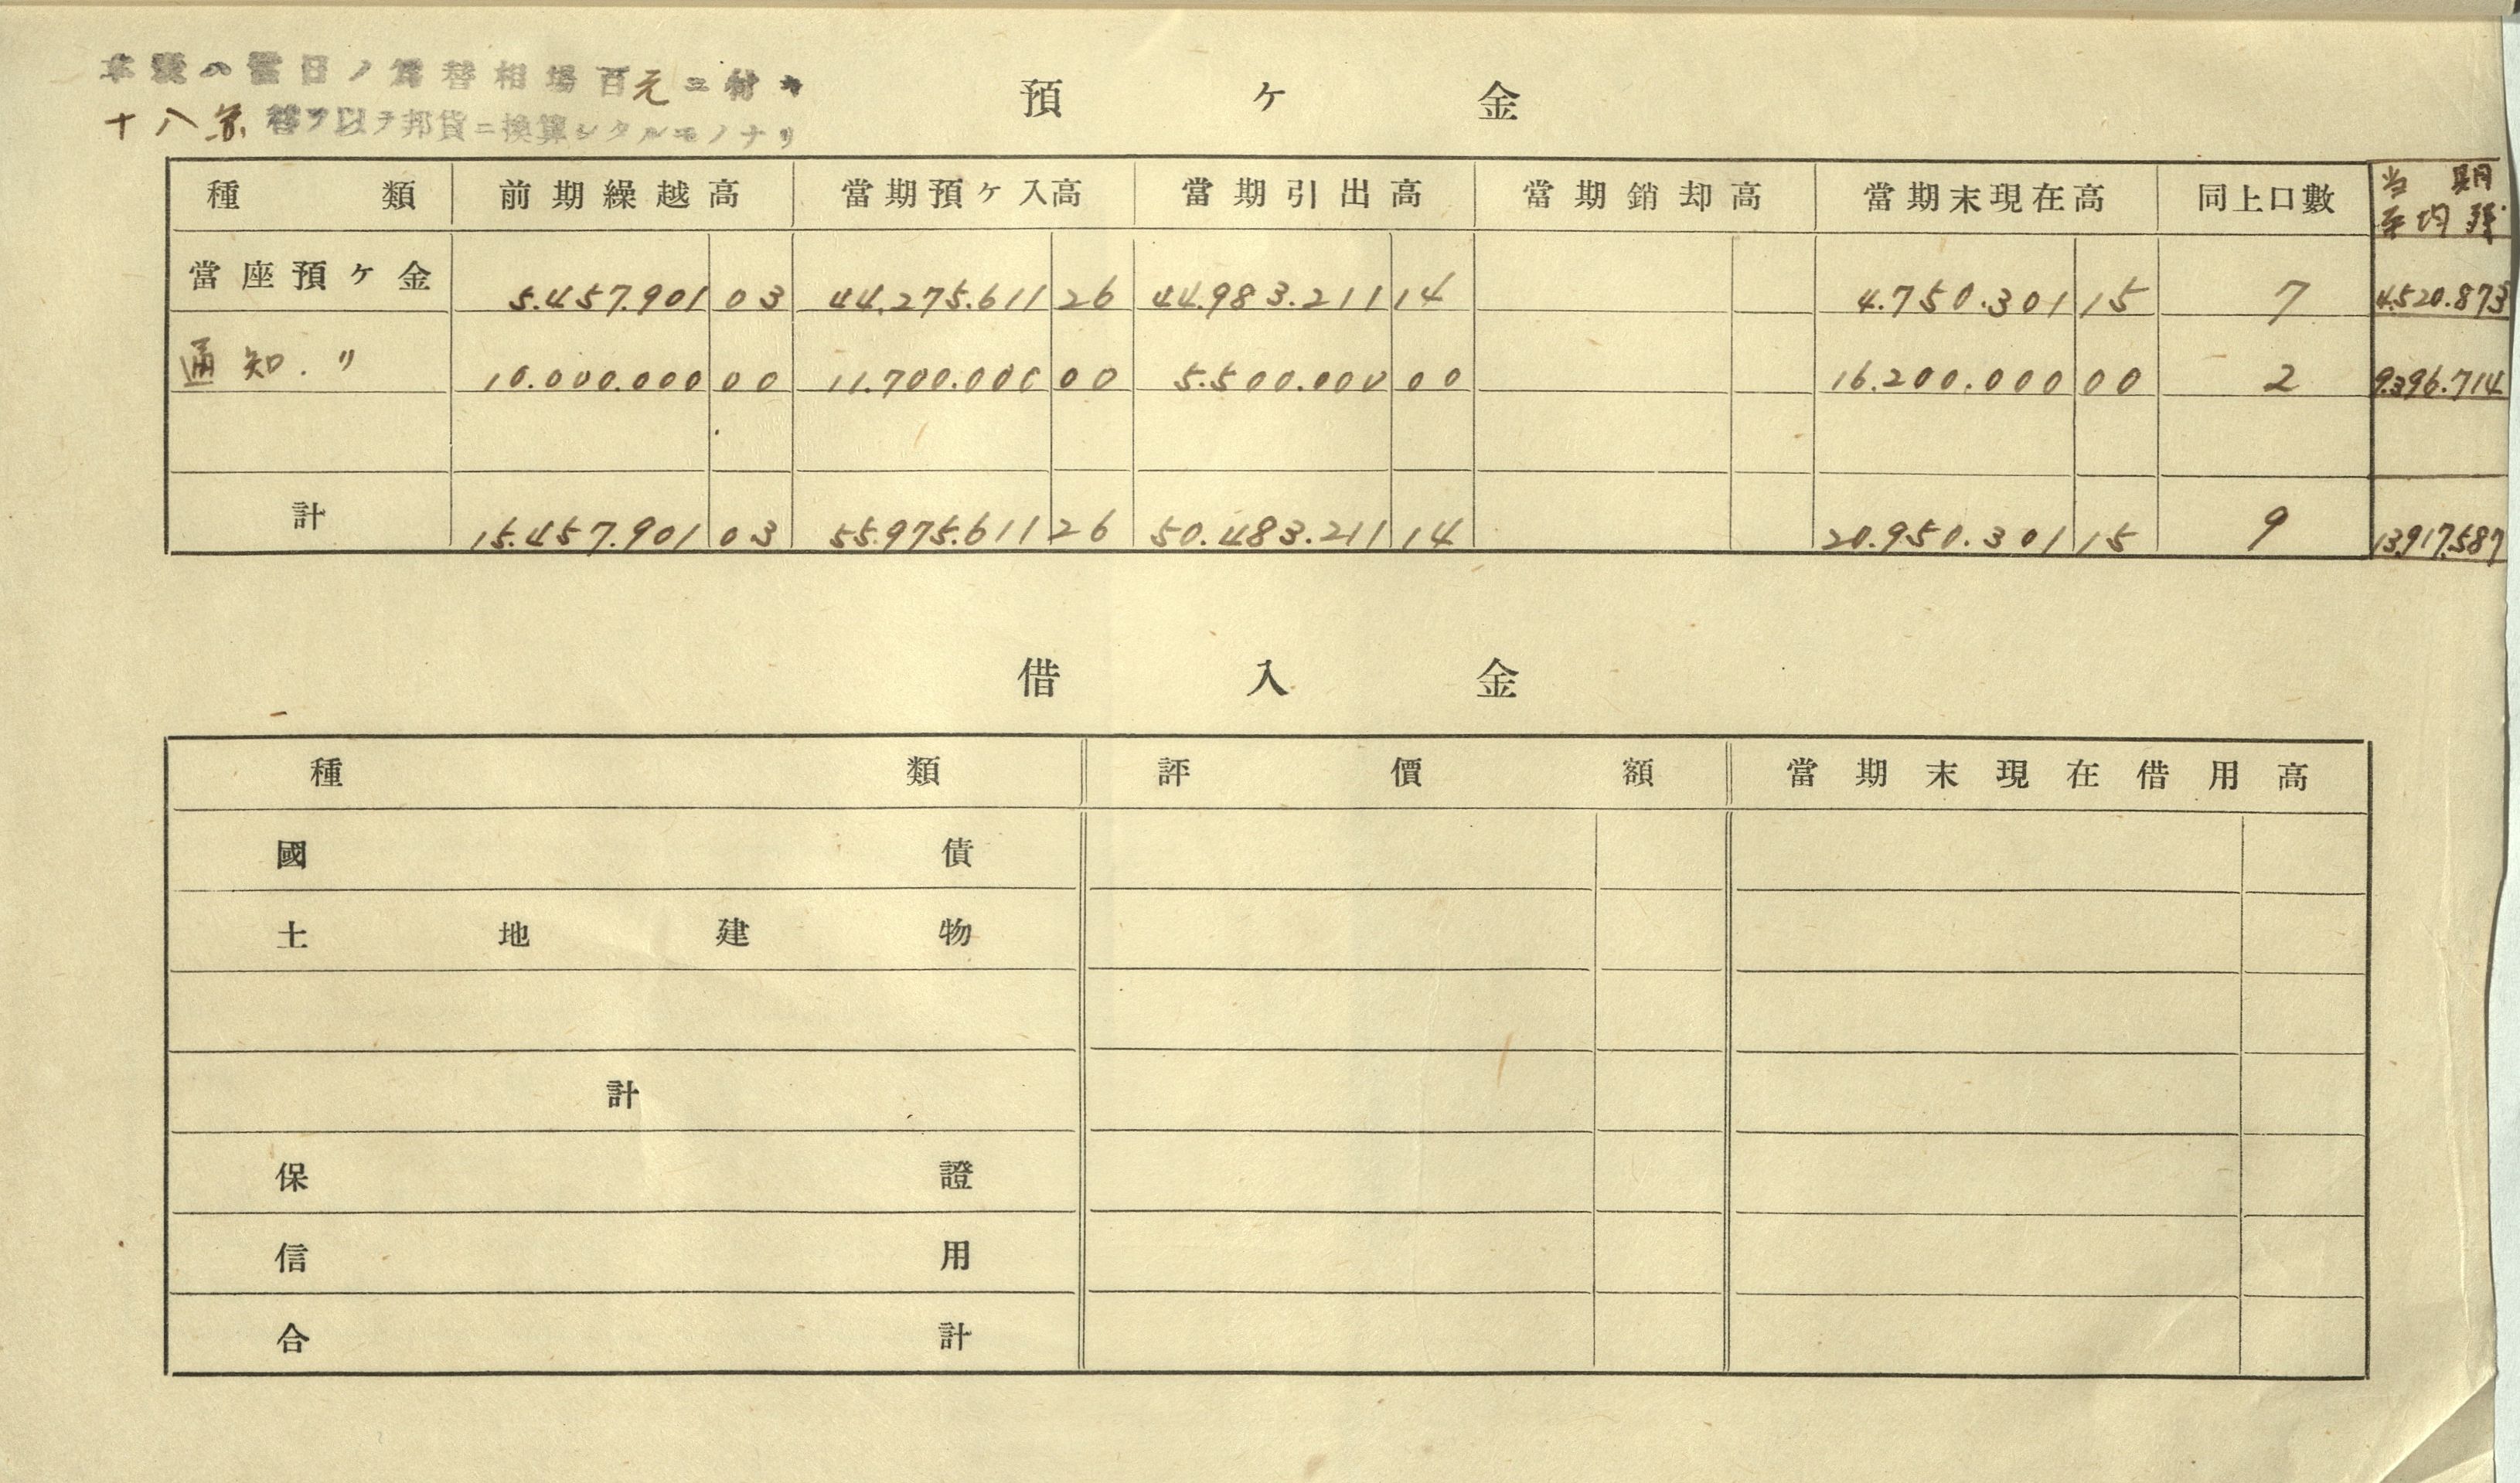 本表ハ當日ノ爲替相場百元ニ付キ
十八弗 替ヲ以テ邦貨ニ換算シタルモノナリ
預ケ金
種類 前期繰越高 當期預ケ入高 當期引出高 當期銷却高 當期末現在高 同上口數 当期平均残
當座預ケ金 5.457.901 03 44.275.611 26 44.983.211 14 4.750.301 15 7 4.520.873
通知 〃 10.000.000 00 11.700.000 00 5.500.000 00 16.200.000 00 2 9.396.714
計 15.457.901 03 55.975.611 26 50.483.211 14 20.950.301 15 9 13.917.587
借入金
種類 評價額 當期末現在借用高
國債
土地建物
計
保證
信用
合計